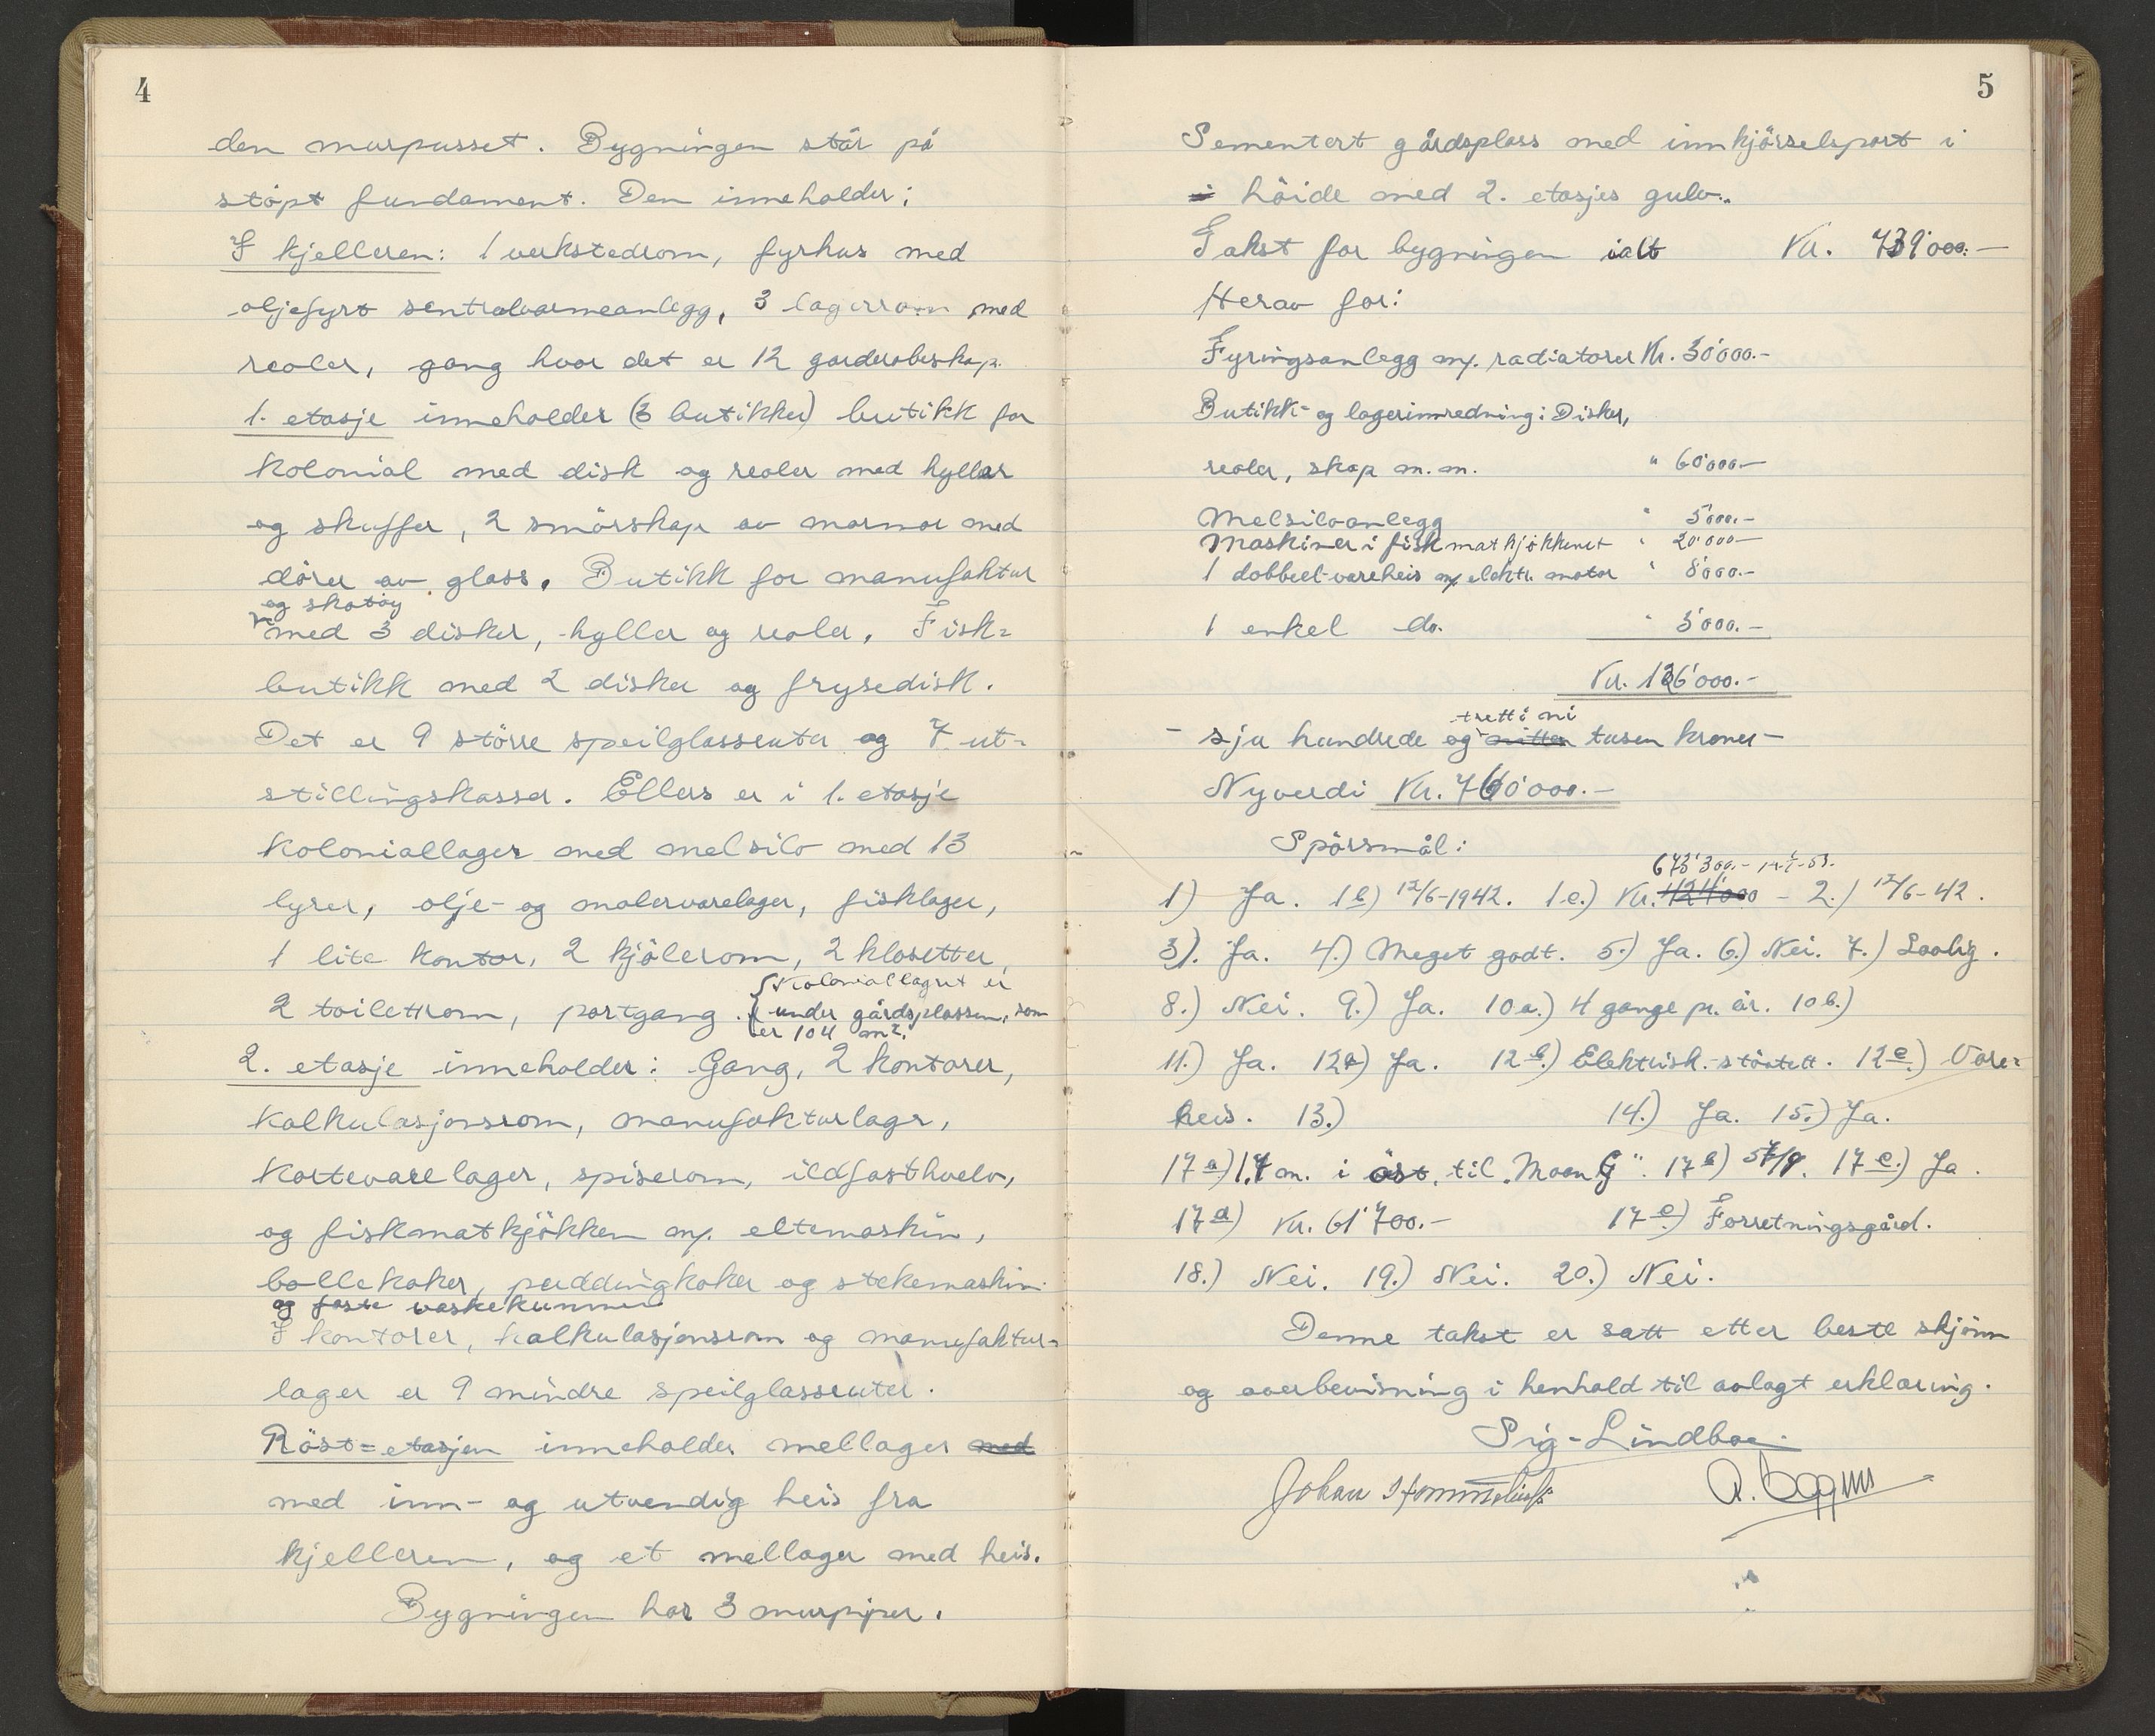 4
den murpusset. Bygningen står på
støpt fundament. Den inneholder:
I kjelleren: 1 verkstedrom, fyrhus med
oljefyrt sentralvarmeanlegg, 3 lagerrom med
reoler, gang hvor det er 12 garderobeskap.
1. etasje inneholder (3 butikker) butikk for
kolonial med disk og reoler med hyller
og skuffer, 2 smörskap av marmor med
dörer av glass. Butikk for manufaktur
og skotøy
med 3 disker, hyller og reoler. Fisk=
butikk med 2 disker og frysedisk.
Det er 9 större speilglassruter og 7 ut-
stillingskasser. Ellers er i 1. etasje
koloniallager med melsilo med 13
lyrer, olje- og malervarelager, fisklager,
1 lite kontor, 2 kjölerom, 2 klosetter,
Koloniallagret er
2 toilettrom, portgang. under gårdsplassen, som
er 104 m².
2. etasje inneholder: Gang, 2 kontorer,
kalkulasjonsrom, manufakturlager,
kortevarelager, spiserom, ildfasthvelv,
og fiskmatkjökken m/. eltemaskin,
bollekoker, puddingkoker og stekemaskin.
og faste vaskekummer
I kontorer, kalkulasjonsrom og manufaktur=
lager er 9 mindre speilglassruter.
Röst=etasjen inneholder mellager med
med inn- og utvendig heis fra
kjelleren, og et mellager med heis.
Bygningen har 3 murpiper.
5
Sementert gårdsplass med innkjörselsport i
i höide med 2. etasjes gulv.
Takst for bygningen ialt Kr. 739'000.—
Herav for:
Fyringsanlegg m/. radiatorer Kr. 30'000.-
Butikk- og lagerinnredning: Disker,
reoler, skap m.m. " 60'000.—
Melsiloanlegg " 5'000.-
Maskiner i fiskmatkjökkenet " 20'000.—
1 dobbelt vareheis m/ elektr. motor " 8'000.-
1 enkel do. " 3'000.-
Kr. 126'000.-
tretti ni
- sju hundrede og nitten tusen kroner -
Nyverdi Kr. 760'000.-
Spörsmål:
673'300.- 14-1-53.
1) Ja. 1b) 12/6-1942. 1c.) Kr. 424'000 - 2.) 12/6-42.
3). Ja. 4.) Meget godt. 5.) Ja. 6.) Nei. 7.) Lovlig.
8.) Nei. 9.) Ja. 10a.) 4 gange pr. år. 10b.)
11.) Ja. 12a) Ja. 12b.) Elektrisk. 12c.) Vare=
heis. 13.) 14.) Ja. 15.) Ja.
17a) 1,7 m. i öst, til "Moen G". 17b) 17c.) Ja.
17d) Kr. 61'700.- 17e) Forretningsgård.
18.) Nei. 19.) Nei. 20.) Nei.
Denne takst er satt etter beste skjönn
og overbevisning i henhold til avlagt erklæring.
Sig. Lindboe.
Johan